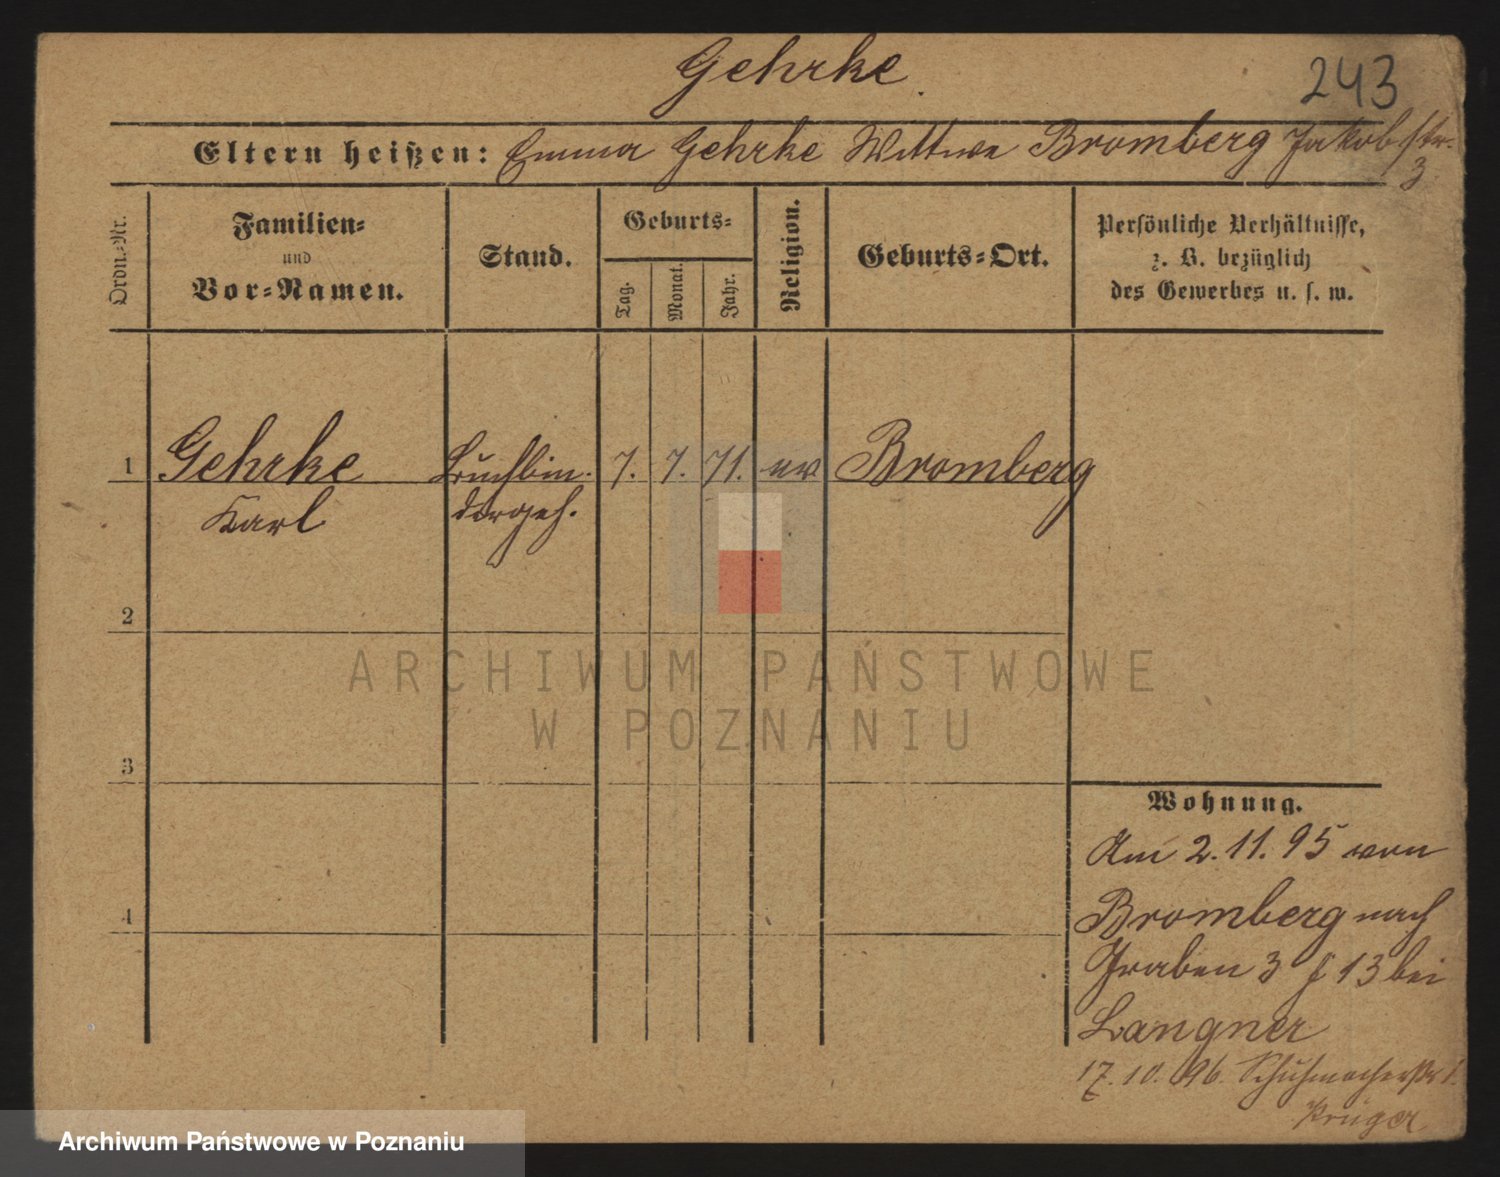 Gehrke.
243
Eltern heißen: Emma Gehrke Wittwe Bromberg Jakobstr. 3
Ordn.-Nr.
Familien- und Vor-Namen.
Stand.
Geburts-
Tag.
Monat.
Jahr.
Religion.
Geburts-Ort.
Persönliche Verhältnisse,
z. B. bezüglich
des Gewerbes u. s. w.
1 Gehrke Buchbin- 7. 7. 71. ev Bromberg
Karl dergeh.
2
3
4
Wohnung.
Am 2.11.95 von
Bromberg nach
Graben 3 13 bei
Langner
17.10.96. Schuhmacherstr 1.
Krüger
ARCHIWUM PAŃSTWOWE
W POZNANIU
Archiwum Państwowe w Poznaniu